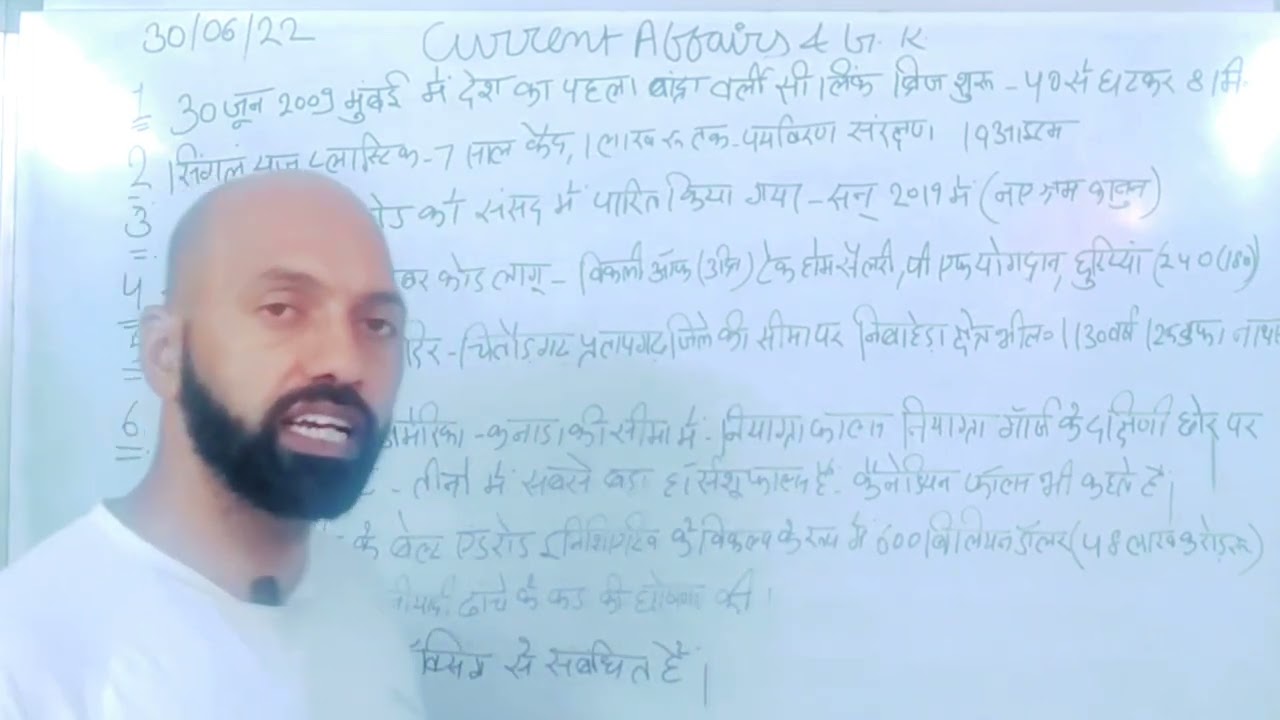 30/06/22 Current Affairs & G.K
1 30 जून 2009 मुंबई में देश का पहला बांद्रा वर्ली सी लिंक ब्रिज शुरू - 40 से घटकर 8 मि
2 सिंगल यूज प्लास्टिक - 7 साल कैद, 1 लाख रु तक - पर्यावरण संरक्षण 19 आइटम
3 कोड को संसद में पारित किया गया - सन् 2019 में (नए श्रम कानून)
4 बर कोड लागू - विकली ऑफ (3दिन) टेक होम सैलरी, पी एफ योगदान, छुट्टियां (240(180)
5 - चितौडगढ प्रतापगढ जिले की सीमा पर निंबाहेडा
6 अमेरिका - कनाडा की सीमा में - नियाग्रा फाल्स नियाग्रा गॉर्ज के दक्षिणी छोर पर
- तीनों में सबसे बडा हॉर्सशू फाल्स है - कैनेडियन फॉल्स भी कहते है।
के बेल्ट एंड रोड इनिशिएटिव के विकल्प के रूप में 600 बिलियन डॉलर (48 लाख करोड रू)
ढांचे के फंड की घोषणा की।
क्सिंग से संबंधित है।